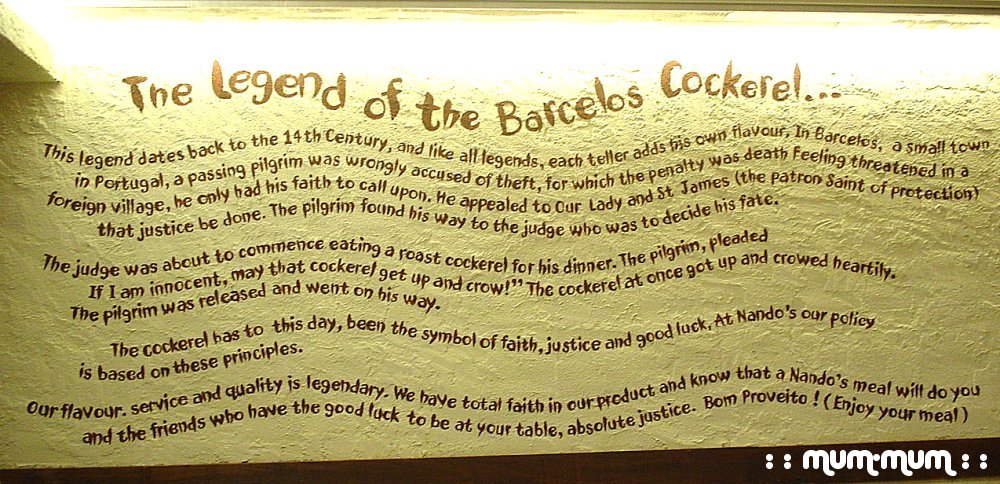 The Legend of the Barcelos Cockerel...
This legend dates back to the 14th Century, and like all legends, each teller adds his own flavour, In Barcelos, a small town
in Portugal, a passing pilgrim was wrongly accused of theft, for which the penalty was death Feeling threatened in a
foreign village, he only had his faith to call upon. He appealed to Our Lady and St. James (the patron Saint of protection)
that justice be done. The pilgrim found his way to the judge who was to decide his fate.
The judge was about to commence eating a roast cockerel for his dinner. The pilgrim, pleaded
If I am innocent, may that cockerel get up and crow!" The cockerel at once got up and crowed heartily.
The pilgrim was released and went on his way.
The cockerel has to this day, been the symbol of faith, justice and good luck, At Nando's our policy
is based on these principles.
Our flavour. service and quality is legendary. We have total faith in our product and know that a Nando's meal will do you
and the friends who have the good luck to be at your table, absolute justice. Bom Proveito ! (Enjoy your meal)
:: mum-mum ::